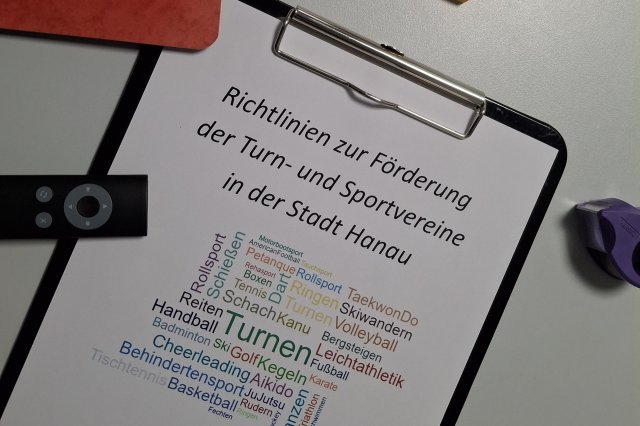 Richtlinien zur Förderung
der Turn- und Sportvereine
in der Stadt Hanau
Motorbootsport
AmericanFootball
Tauchsport
Petanque
Rollsport
Rollsport
Schießen
Rehasport
Boxen
Dart
Ringen
TaekwonDo
Tennis
Turnen
Skiwandern
Reiten
Schach
Kanu
Volleyball
Handball
Turnen
Bergsteigen
Badminton
Ski
Golf
Leichtathletik
Cheerleading
Kegeln
Fußball
Tischtennis
Behindertensport
Aikido
Karate
Basketball
JuJutsu
Fechten
Ringen
Rudern